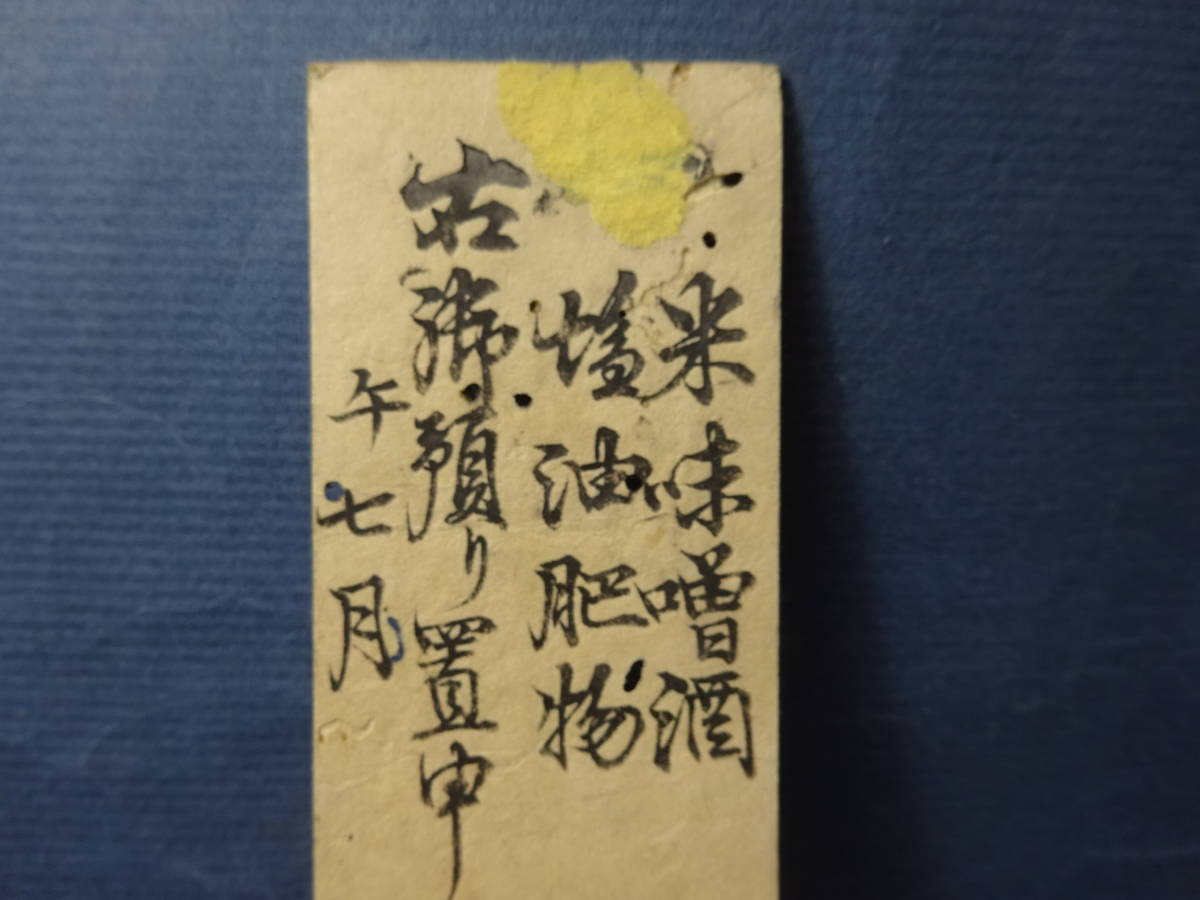 一
米味噌酒
塩油肥物
右御預り置申
午七月